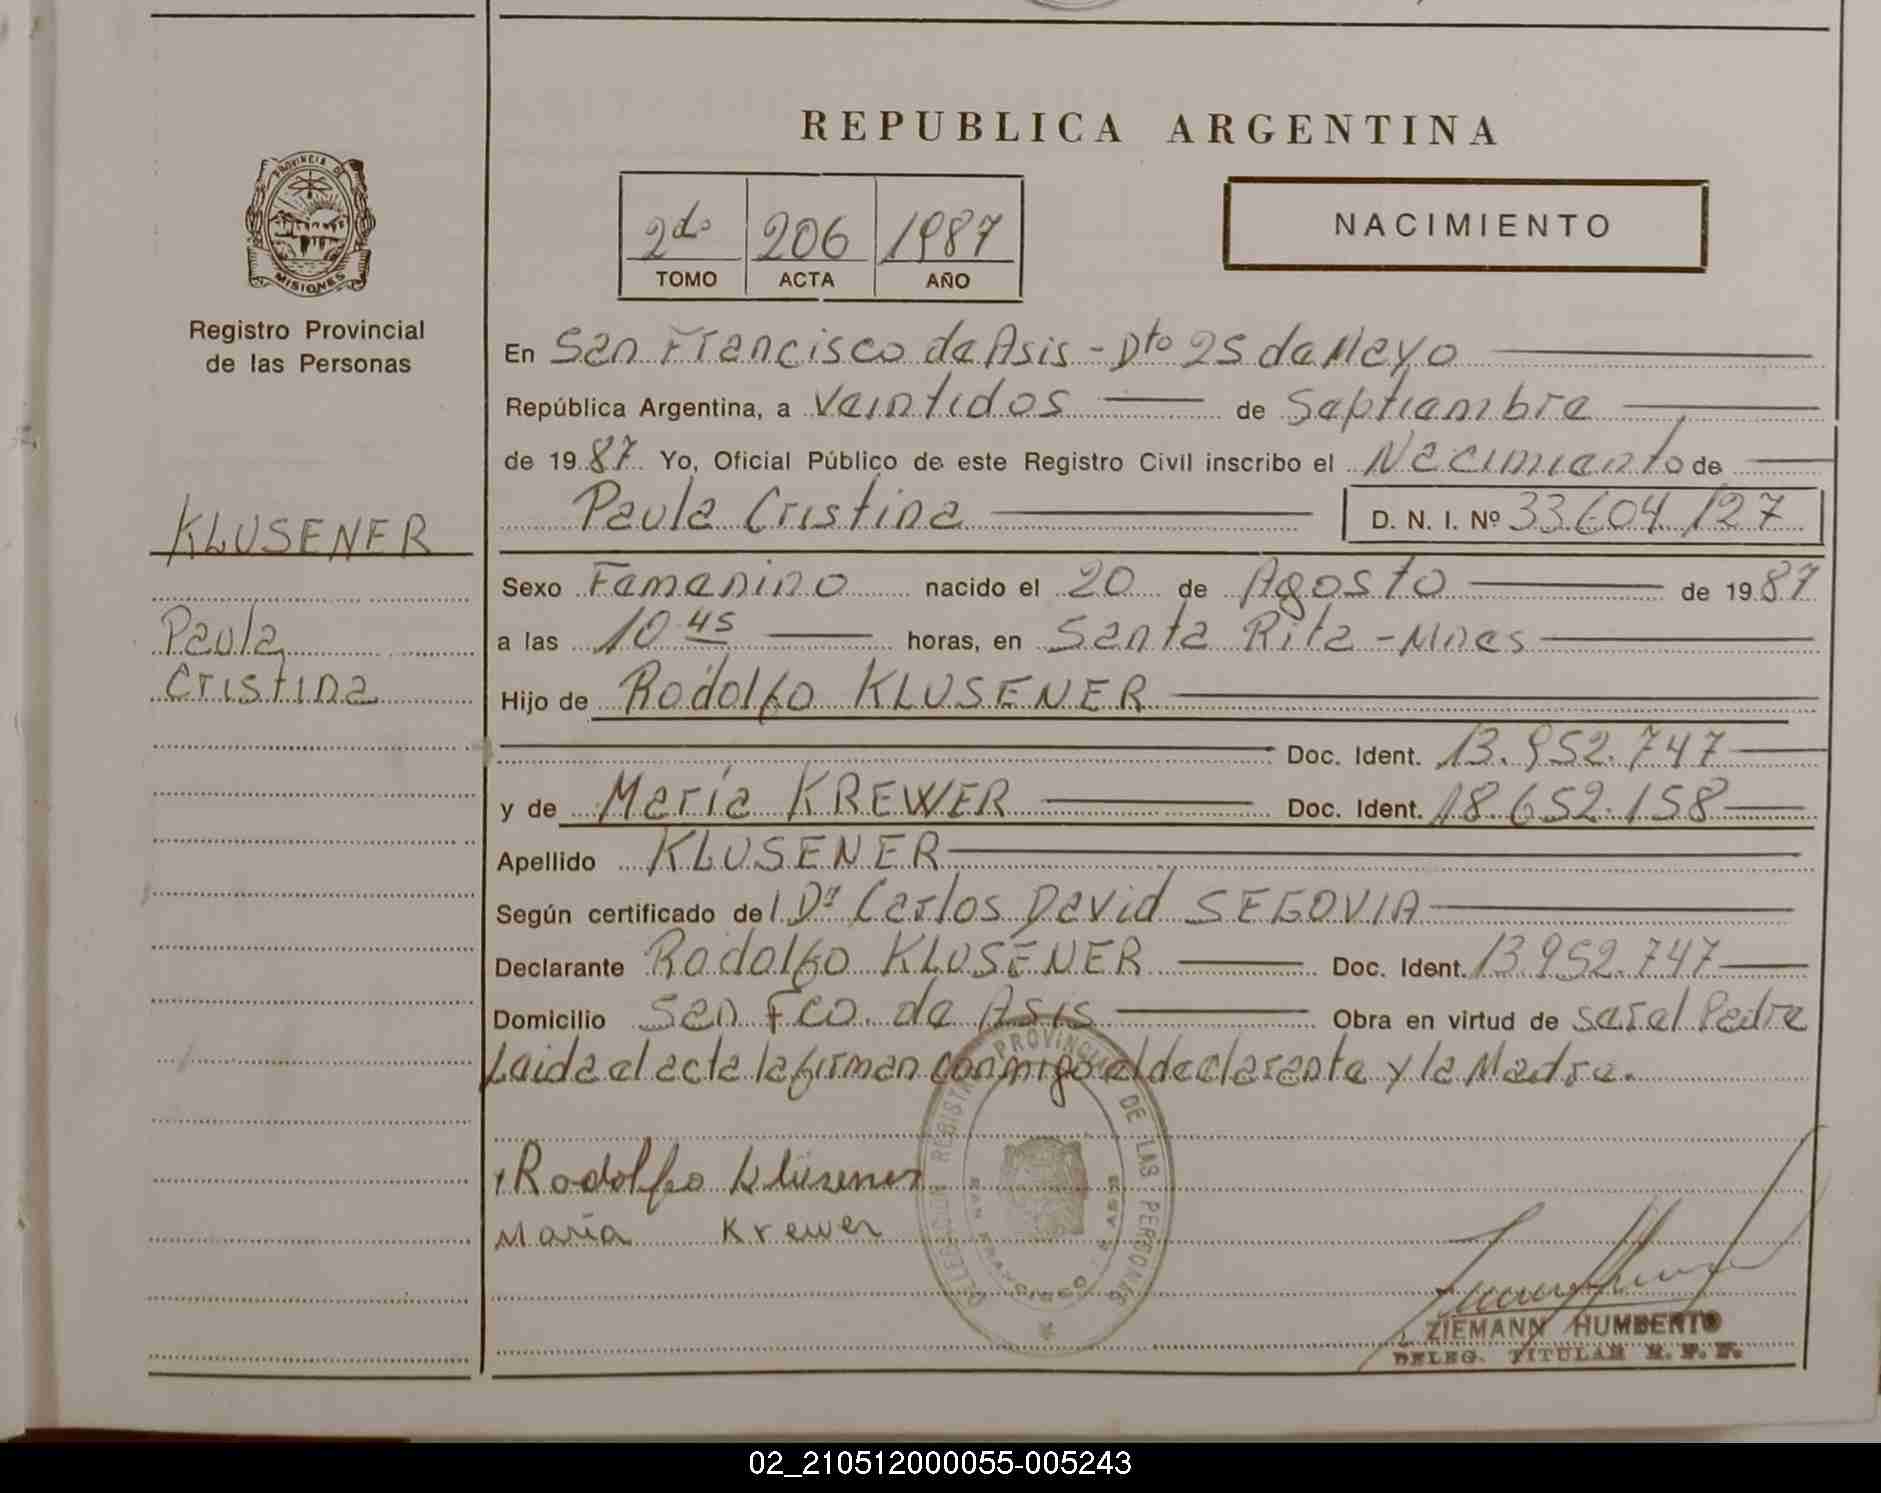 REPUBLICA ARGENTINA
PROVINCIA DE
MISIONES
Registro Provincial
de las Personas
2do 206 1987
TOMO ACTA AÑO
NACIMIENTO
En San Francisco de Asis - Dto 25 de Mayo
República Argentina, a Veintidos de Septiembre
de 1987 Yo, Oficial Público de este Registro Civil inscribo el Nacimiento de
Paula Cristina D. N. I. Nº 33.604.127
KLUSENER
Paula
Cristina
Sexo Femenino nacido el 20 de Agosto de 1987
a las 10 45 horas, en Santa Rita - Mnes
Hijo de Rodolfo KLUSENER
Doc. Ident. 13.952.747
y de María KREWER Doc. Ident. 18.652.158
Apellido KLUSENER
Según certificado del Dr Carlos David SEGOVIA
Declarante Rodolfo KLUSENER Doc. Ident. 13.952.747
Domicilio San Fco. de Asis Obra en virtud de ser el Padre
Leida el acta la firman conmigo el declarante y la Madre.
Rodolfo Klüsener
María Krewer
REGISTRO PROVINCIAL DE LAS PERSONAS
SAN FRANCISCO DE ASIS
ZIEMANN HUMBERTO
DELEG. TITULAR R. P. P.
02_210512000055-005243